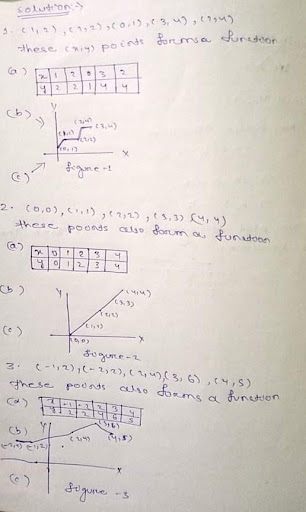 solution:→
1. (1,2), (2,2), (0,1), (3,4), (2,4)
these (x,y) points forms a function
(a) x 1 2 0 3 2
y 2 2 1 4 4
(b) y
(2,4) (3,4)
(1,2) (2,2)
(0,1)
x
(c) figure-1
2. (0,0), (1,1), (2,2), (3,3) (4,4)
these points also form a function
(a) x 0 1 2 3 4
y 0 1 2 3 4
(b) y
(4,4)
(3,3)
(2,2)
(1,1)
(0,0) x
(c) figure-2
3. (-1,2), (-2,2), (2,4), (3,6), (4,5)
these points also forms a function
(a) x -1 -2 2 3 4
y 2 2 4 6 5
(b) y
(3,6)
(2,4) (4,5)
(-2,2) (-1,2)
x
(c) figure-3